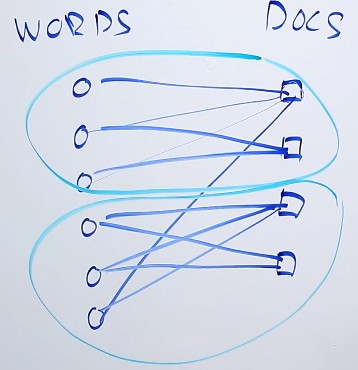 WORDS DOCS